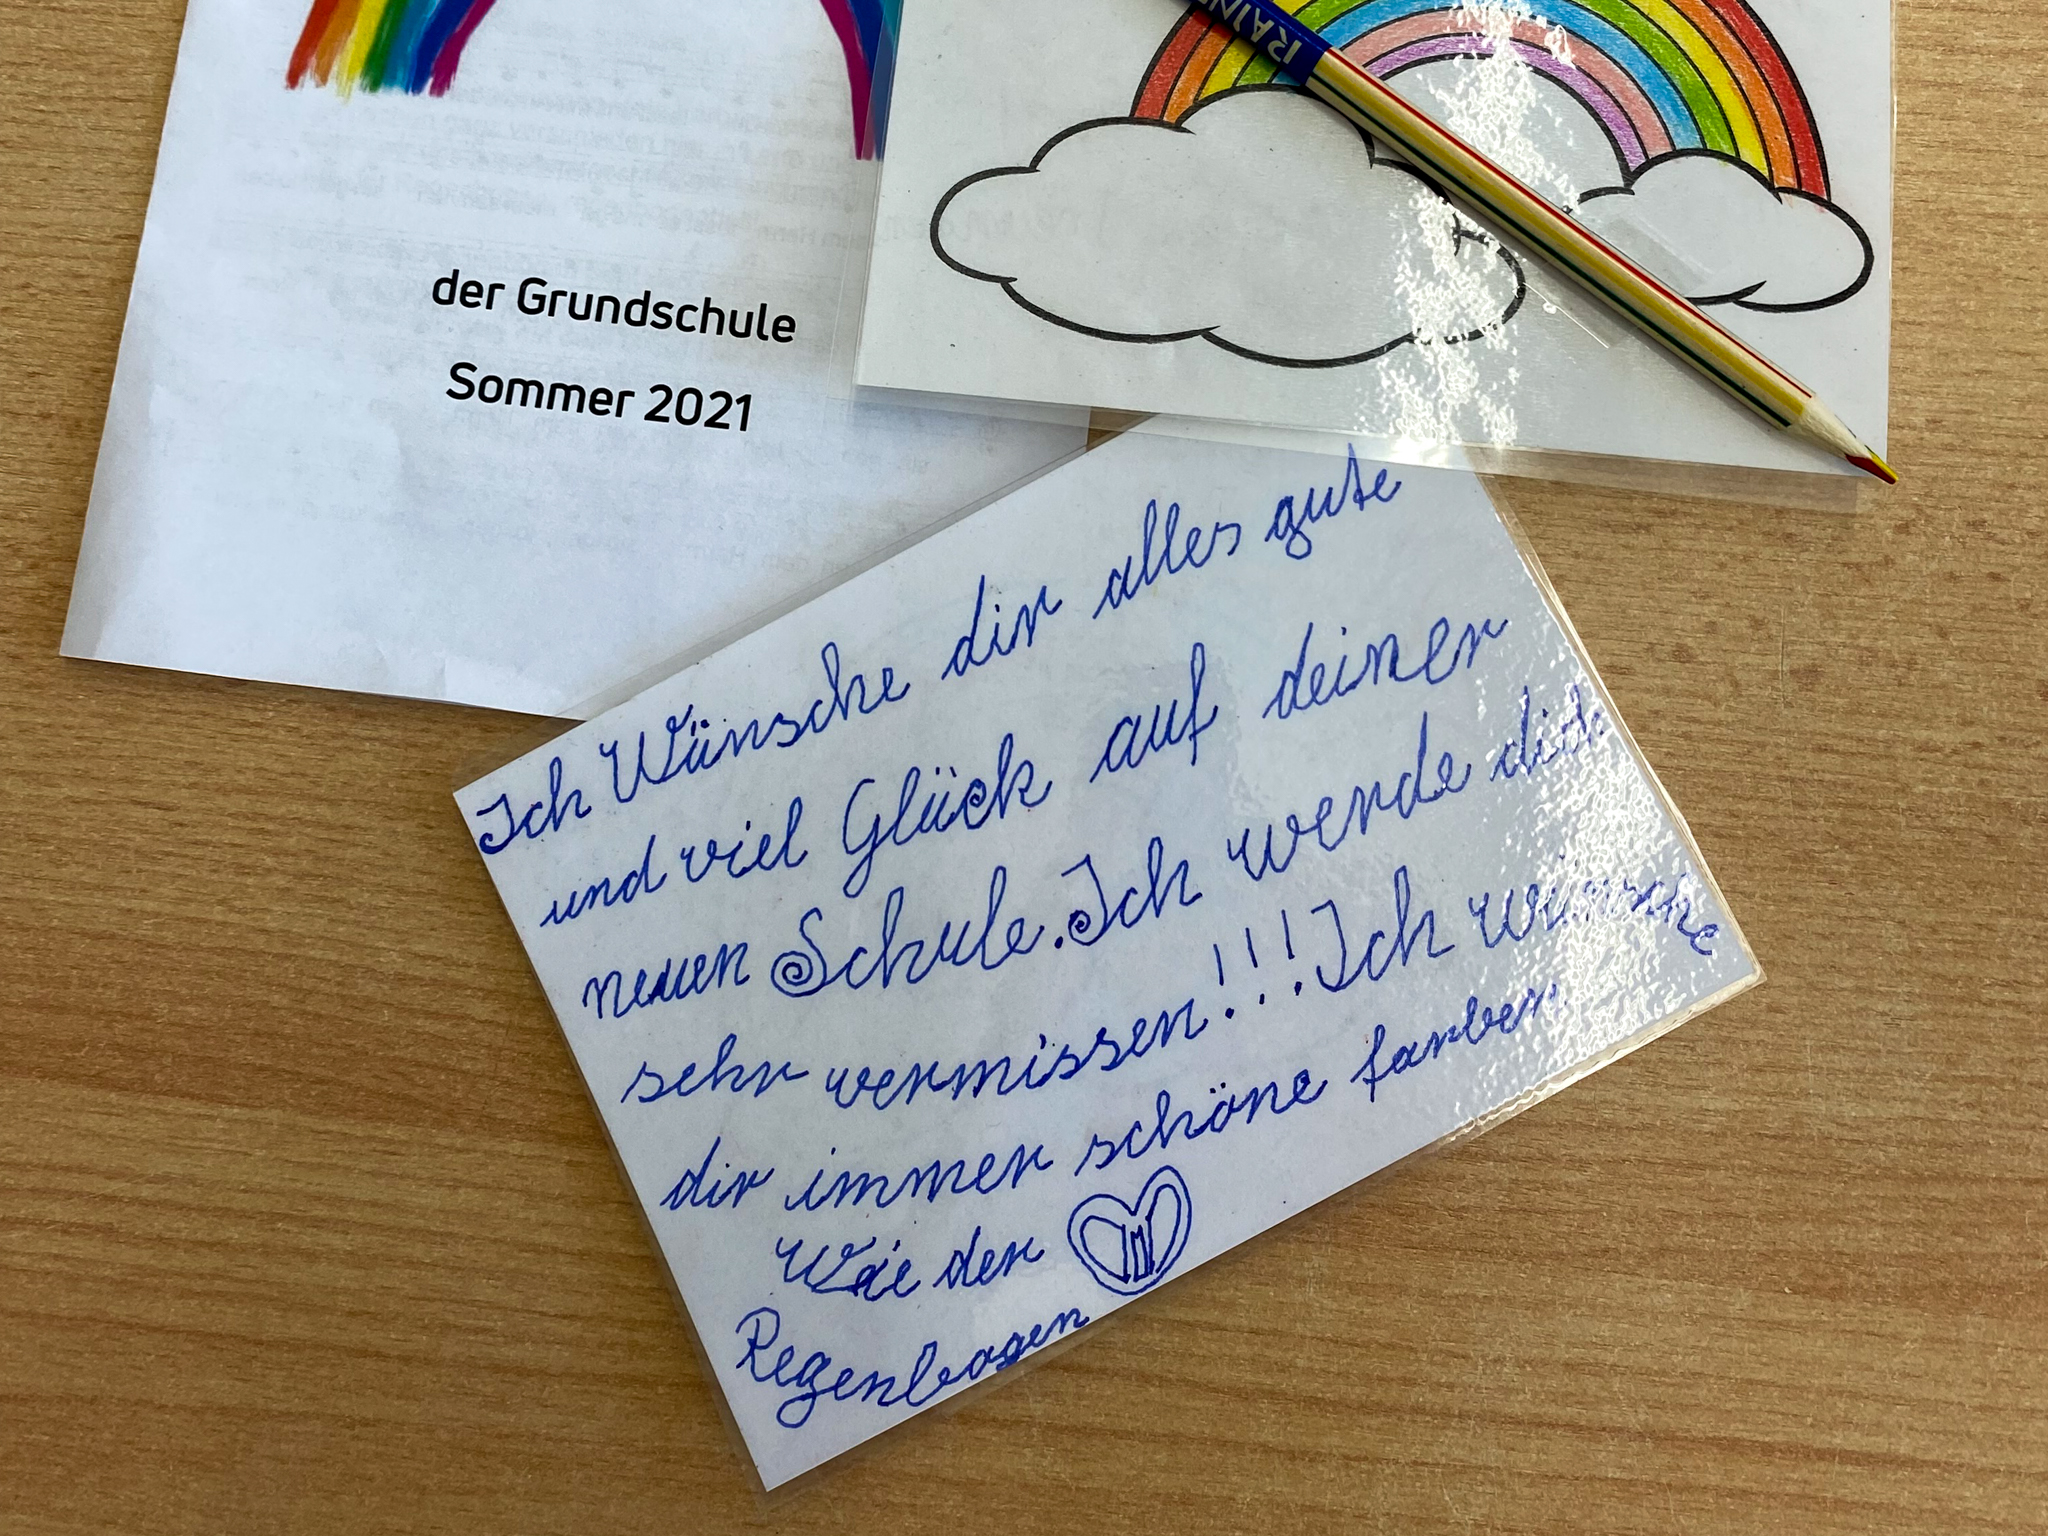 der Grundschule
Sommer 2021
RAIN
Ich Wünsche dir alles gute
und viel Glück auf deiner
neuen Schule. Ich werde dich
sehr vermissen!!! Ich wünsche
dir immer schöne farben
Wie der
Regenbogen